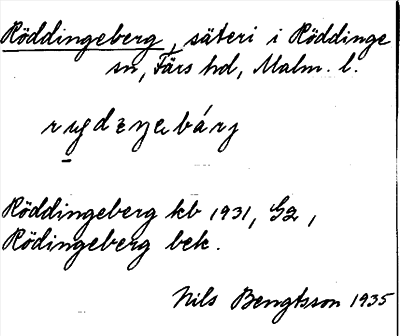 Röddingeberg, säteri i Röddinge
sn, Färs hd, Malm. l.
Röddingeberg kb 1931, G2,
Rödingeberg bek.
Nils Bengtsson 1935